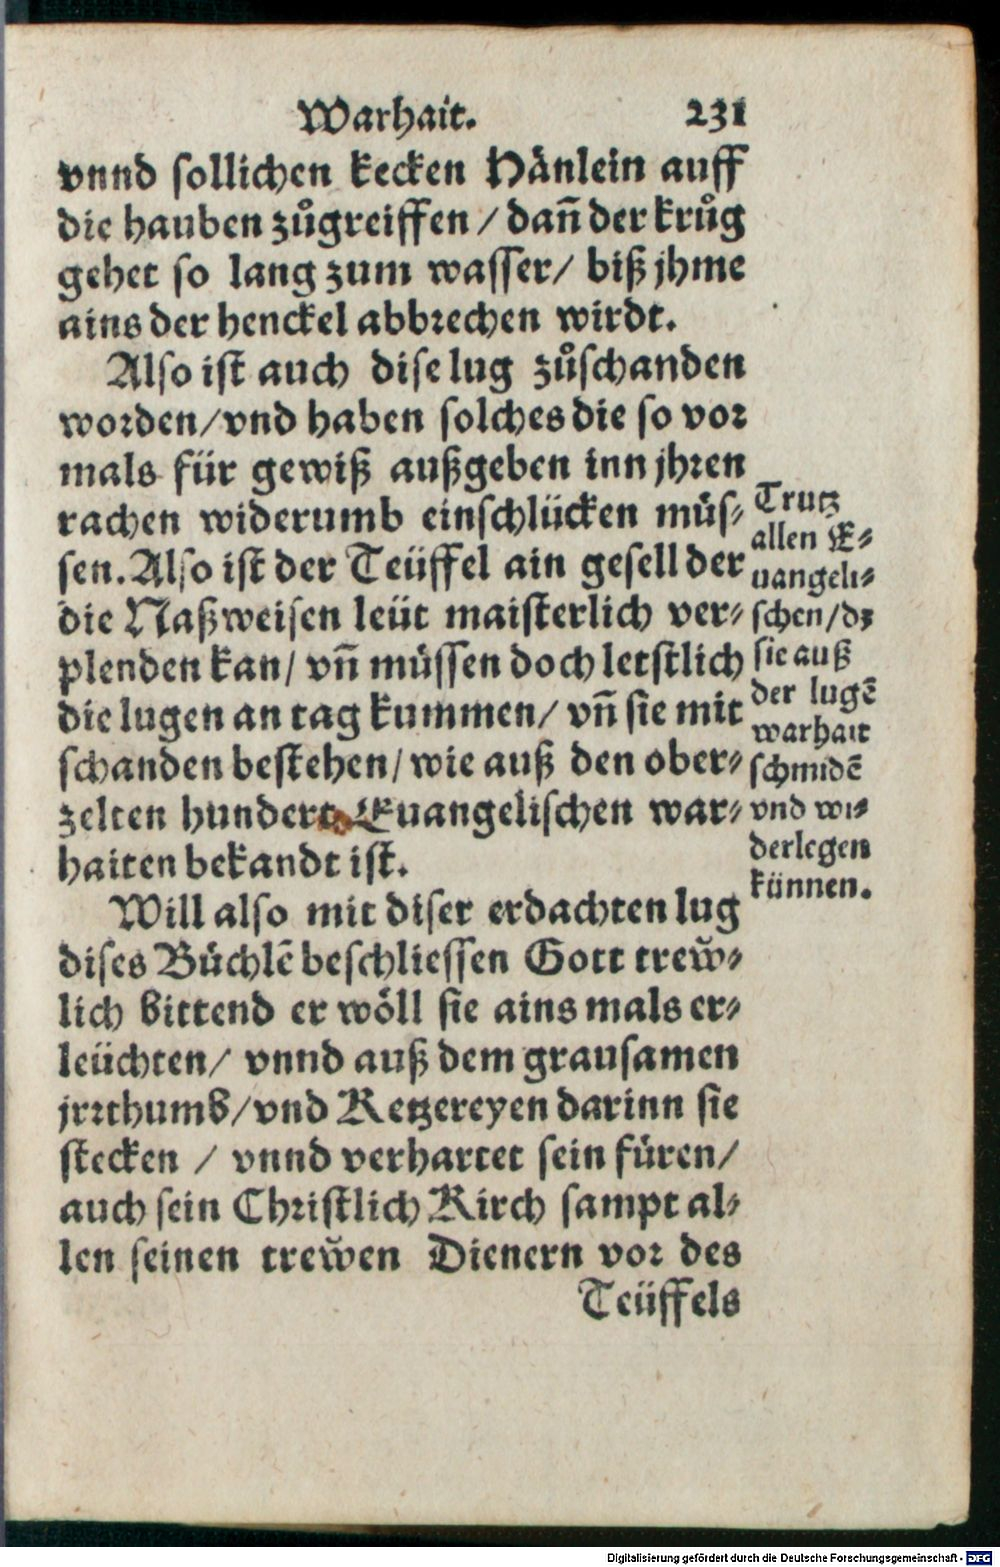 Warhait. 231
vnnd sollichen kecken Hänlein auff
die hauben zůgreiffen / dañ der krůg
gehet so lang zum wasser / biß jhme
ains der henckel abbrechen wirdt.
Also ist auch dise lug zůschanden
worden / vnd haben solches die so vor
mals für gewiß außgeben inn jhren
rachen widerumb einschlücken müs⸗
sen. Also ist der Teüffel ain gesell der
die Naßweisen leüt maisterlich ver⸗
plenden kan / vñ müssen doch letstlich
die lugen an tag kummen / vñ sie mit
schanden bestehen / wie auß den ober⸗
zelten hundert Euangelischen war⸗
haiten bekandt ist.
Trutz
allen E⸗
uangeli⸗
schen / dz
sie auß
der lugẽ
warhait
schmidẽ
vnd wi⸗
derlegen
künnen.
Will also mit diser erdachten lug
dises Büchlẽ beschliessen Gott trew̆⸗
lich bittend er wöll sie ains mals er⸗
leüchten / vnnd auß dem grausamen
jrrthumb / vnd Ketzereyen darinn sie
stecken / vnnd verhartet sein füren /
auch sein Christlich Kirch sampt al⸗
len seinen trew̆en Dienern vor des
Teüffels
Digitalisierung gefördert durch die Deutsche Forschungsgemeinschaft - DFG